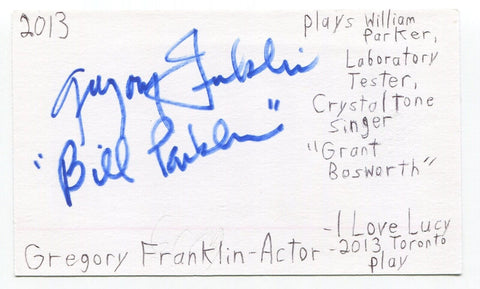 2013
Gregory Franklin
"Bill Parker"
plays William
Parker,
Laboratory
Tester,
Crystaltone
singer
"Grant
Bosworth"
-I Love Lucy
-2013 Toronto
play
Gregory Franklin-Actor